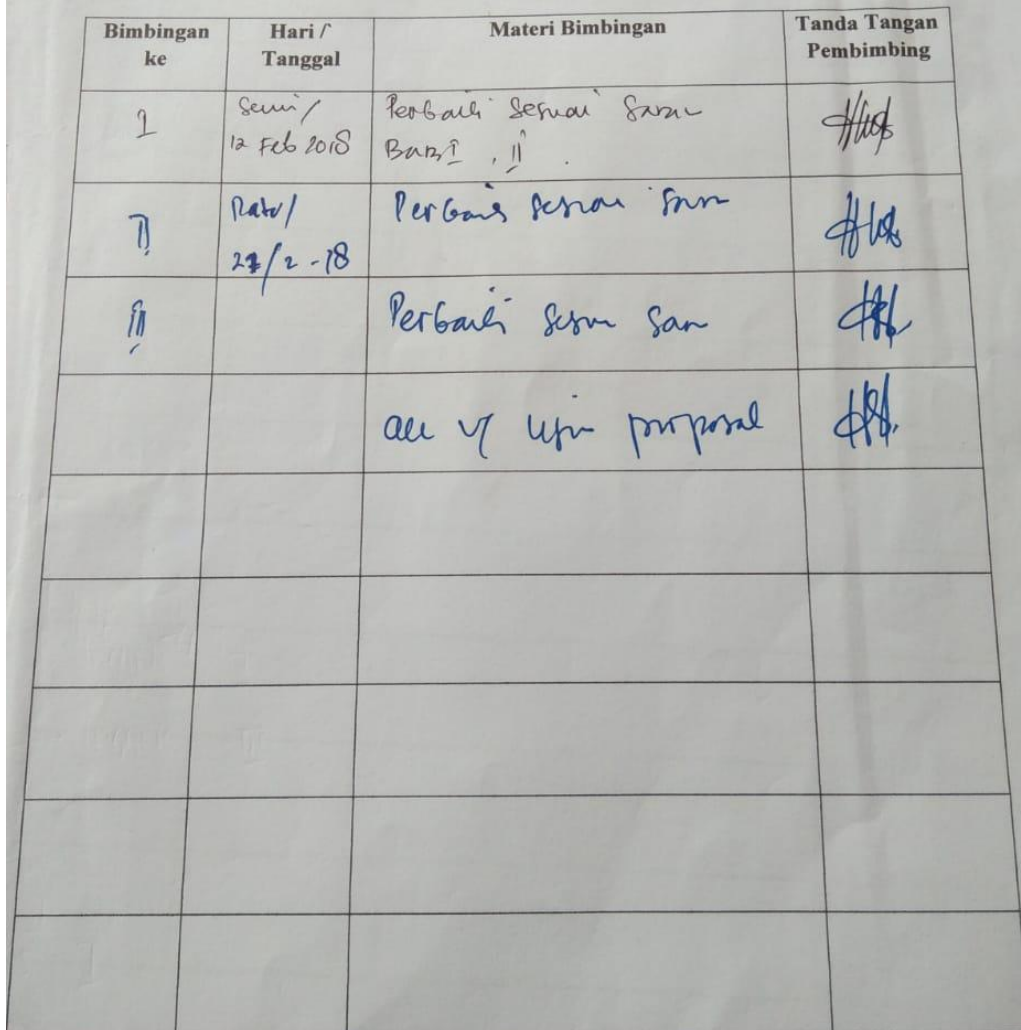 Bimbingan ke
Hari / Tanggal
Materi Bimbingan
Tanda Tangan Pembimbing
I
Senin /
12 Feb 2018
Perbaiki Sesuai Saran
Bab I , II .
II
Rabu /
/ 2 - 18
Perbaiki sesuai saran
III
Perbaiki sesuai saran
acc u/ ujian proposal